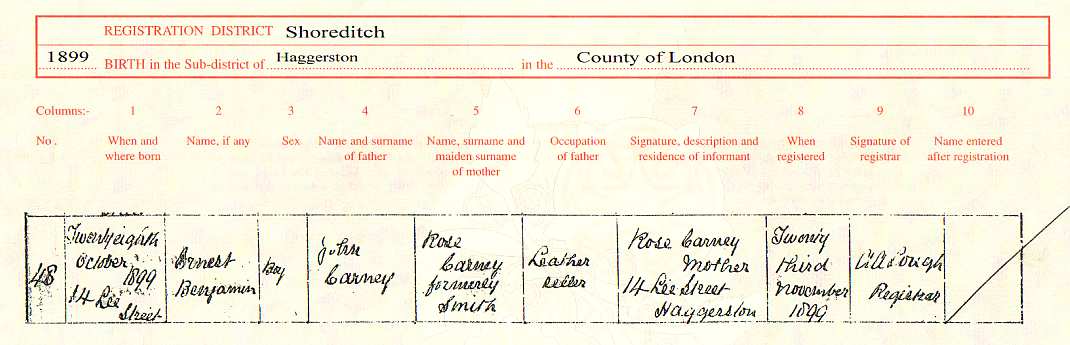 REGISTRATION DISTRICT Shoreditch
1899 BIRTH in the Sub-district of Haggerston in the County of London
Columns:- 1 2 3 4 5 6 7 8 9 10
No. When and where born Name, if any Sex Name and surname of father Name, surname and maiden surname of mother Occupation of father Signature, description and residence of informant When registered Signature of registrar Name entered after registration
48
Twentyeighth
October
1899
14 Lee
Street
Ernest
Benjamin
Boy
John
Carney
Rose
Carney
formerly
Smith
Leather
seller
Rose Carney
Mother
14 Lee Street
Haggerston
Twenty
third
November
1899
Registrar